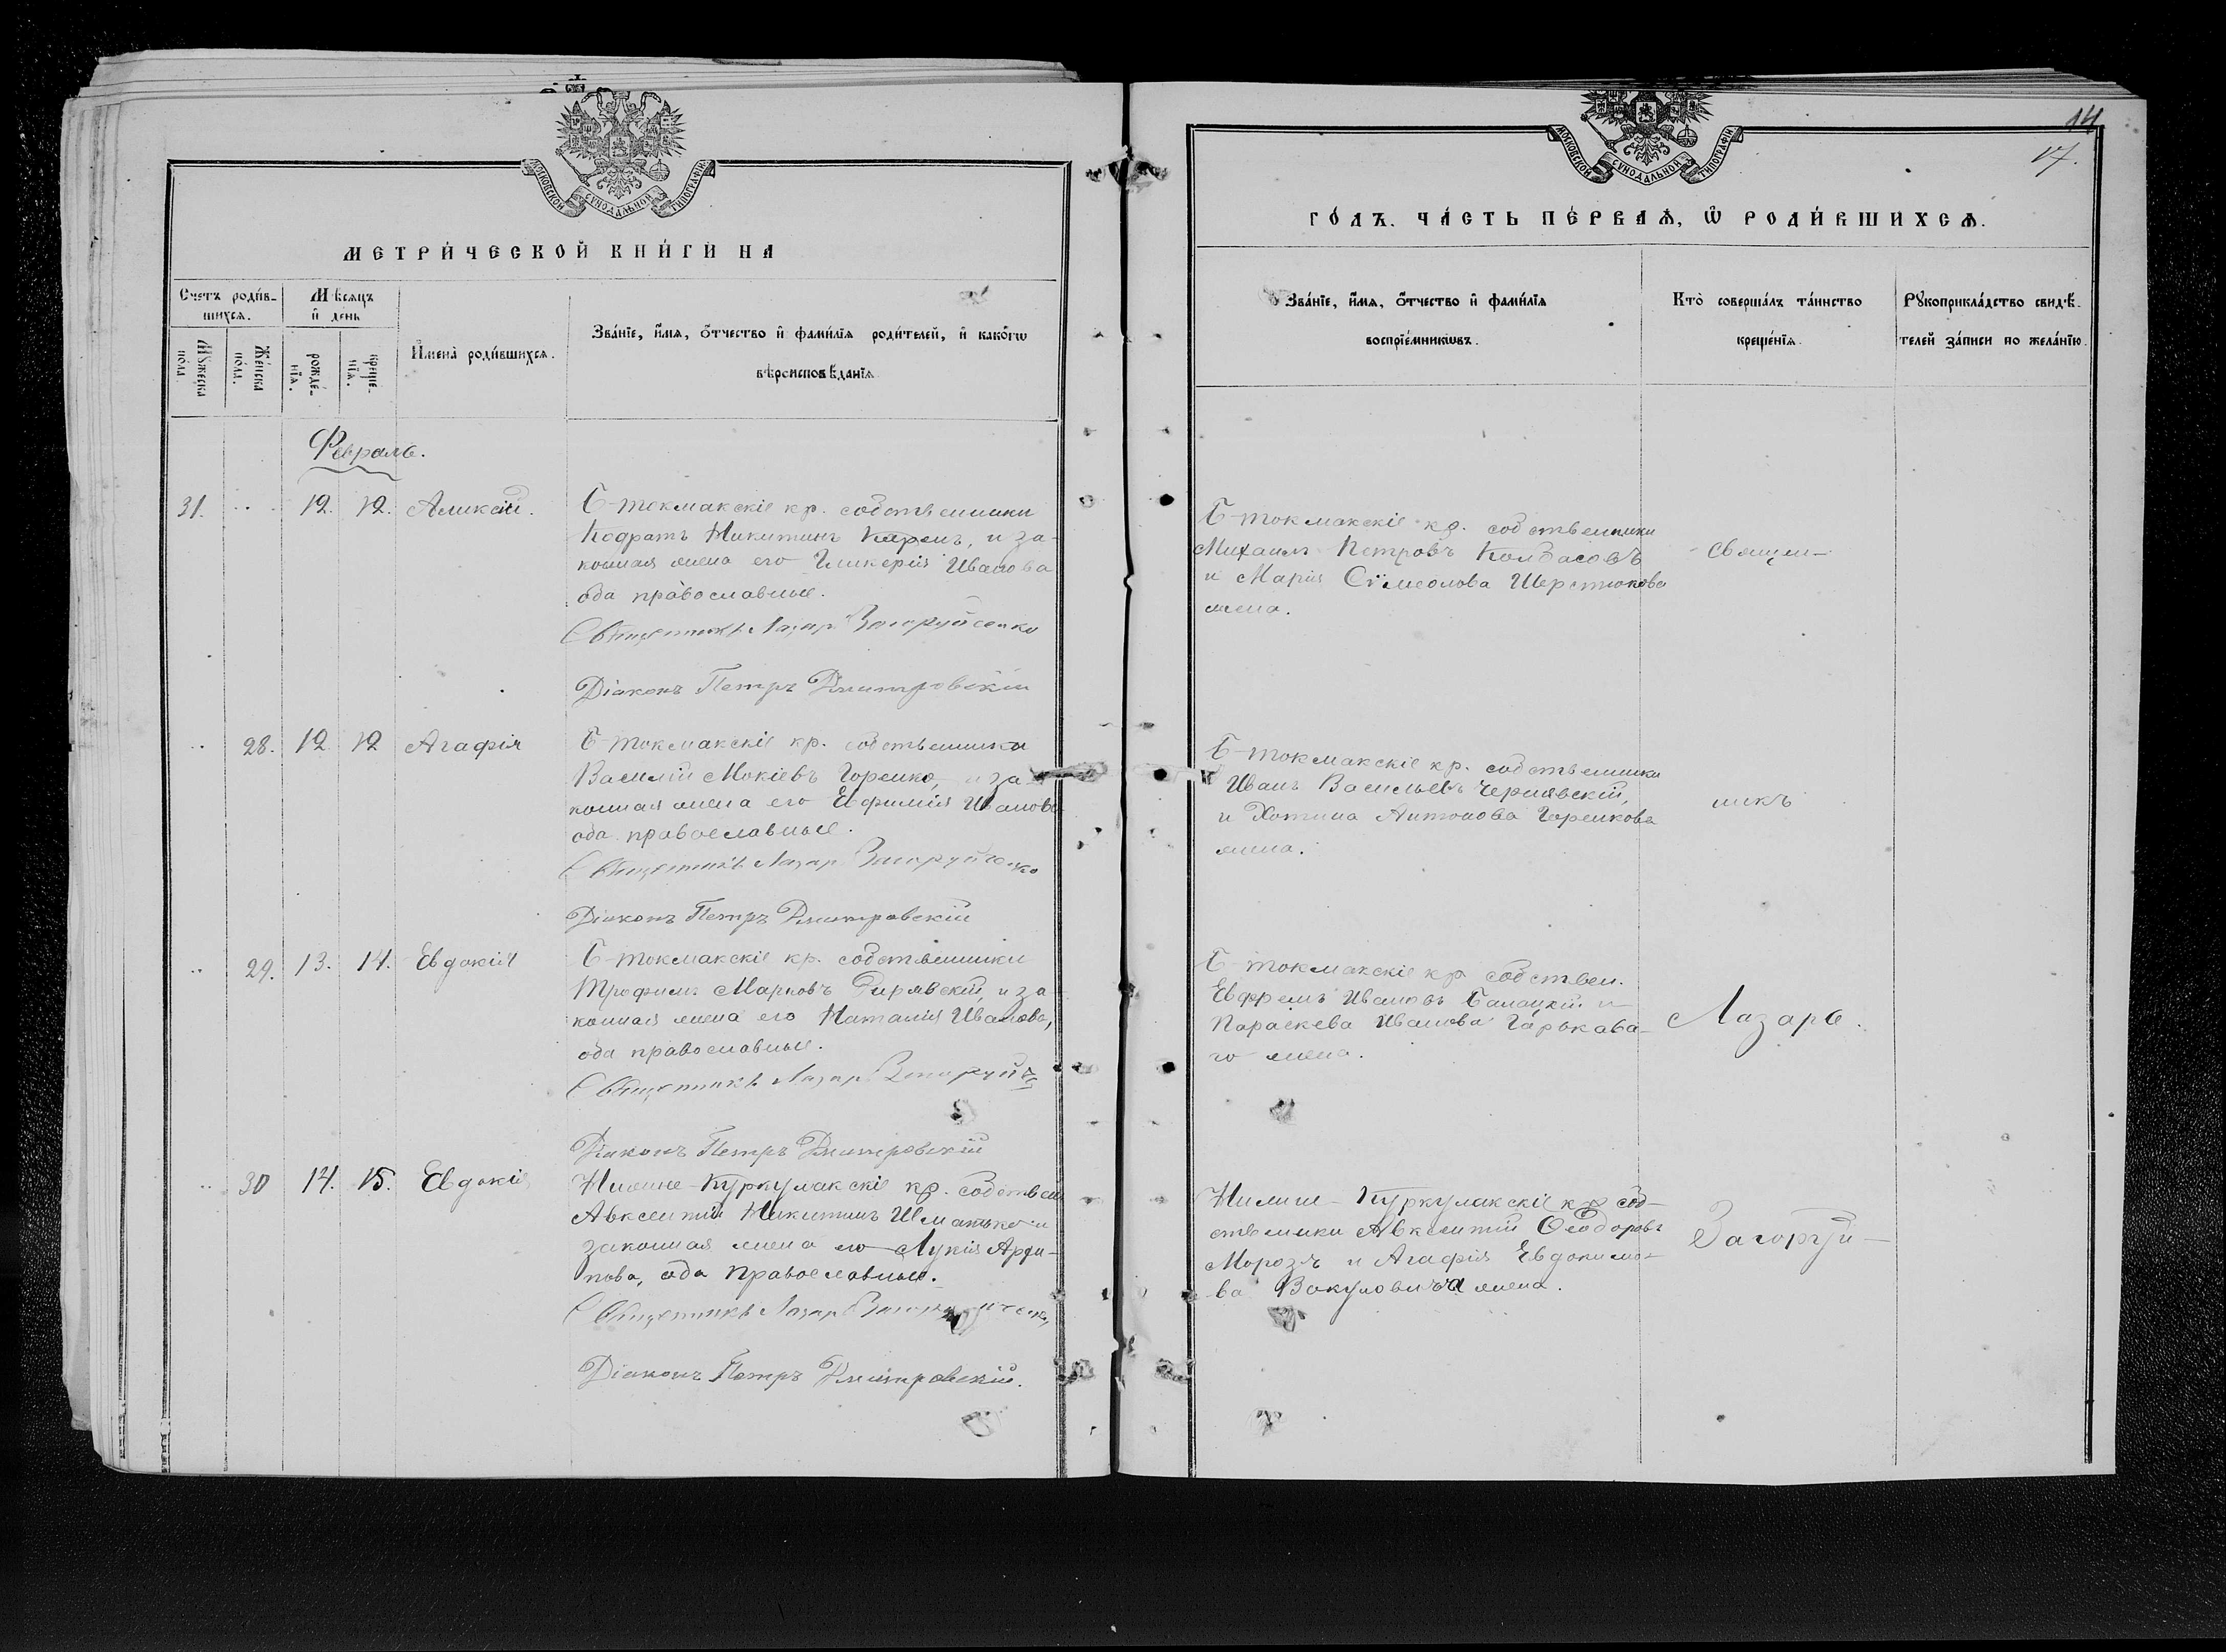 МОСКОВСКОЙ СѴНОДАЛЬНОЙ ТИПОГРАФІИ
МЕТРИ́ЧЕСКОЙ КНИ́ГИ НА
Счетъ роди́в-
шихсѧ.
Мѣсѧцъ
и҆ день
Мꙋ́жеска
по́ла.
Же́нска
по́ла.
рожде́-
нїѧ.
креще́-
нїѧ.
И҆мена̀ роди́вшихсѧ.
Зва́нїе, и҆́мѧ, ѻ҆́тчество и҆ фами́лїѧ роди́телей, и҆ како́гѡ
вѣроисповѣданїѧ
Февраль.
31. 12. 12. Алексій.
Б-токмакскіе кр. собственники
Кодратъ Никитинъ Карень, и за-
конная жена его Гликерія Иванова
оба православные.
Священникъ Лазарь Загоруйченко
Діаконъ Петръ Дмитровскій
28. 12 12 Агафія
Б-токмакскіе кр. собственники
Василій Мокіевъ Горенко, и за-
конная жена его Евфимія Иванова
оба православные.
Священникъ Лазарь Загоруйченко
Діаконъ Петръ Дмитровскій
29. 13. 14. Евдокія
Б-токмакскіе кр. собственники
Трофимъ Марковъ и за
конная жена его Наталія Иванова,
оба православные.
Священникъ Лазарь
Діаконъ Петръ Дмитровскій
30 14. 15. Евдокія
Нижне-Куркулакскіе кр. собствен
Авксентій Никитинъ Шматько и
законная жена его Лукія
оба православные.
Священникъ Лазарь Загоруйченко
Діаконъ Петръ Дмитровскій.
14
17.
МОСКОВСКОЙ СѴНОДАЛЬНОЙ ТИПОГРАФІИ
ГО́ДЪ. ЧА́СТЬ ПЕ́РВАѦ, Ѡ҆ РОДИ́ВШИХСѦ.
Зва́нїе, и҆́мѧ, ѻ҆́тчество и҆ фами́лїѧ
воспрїе́мникѡвъ.
Кто̀ соверша́лъ та́инство
креще́нїѧ.
Рꙋкоприкла́дство свидѣ́-
телей за́писи по жела́нїю.
Б-токмакскіе кр. собственники
Михаилъ Петровъ Колбасовъ
и Марія Сѵмеонова Шерстюкова
жена.
Священ-
Б-токмакскіе кр. собственники
Иванъ Васильевъ Чернявскій,
и Хотина Антонова Горенкова
жена.
никъ
Б-токмакскіе кр. собствен.
Ефремъ Ивановъ Балацкій и
Параскева Иванова Гаркава-
го жена.
Лазарь.
Нижне-Куркулакскіе кр соб-
ственики Авксентій Ѳеодоровъ
Морозъ и Агафія Евдокимо-
ва Вакуловича жена.
Загоруй-